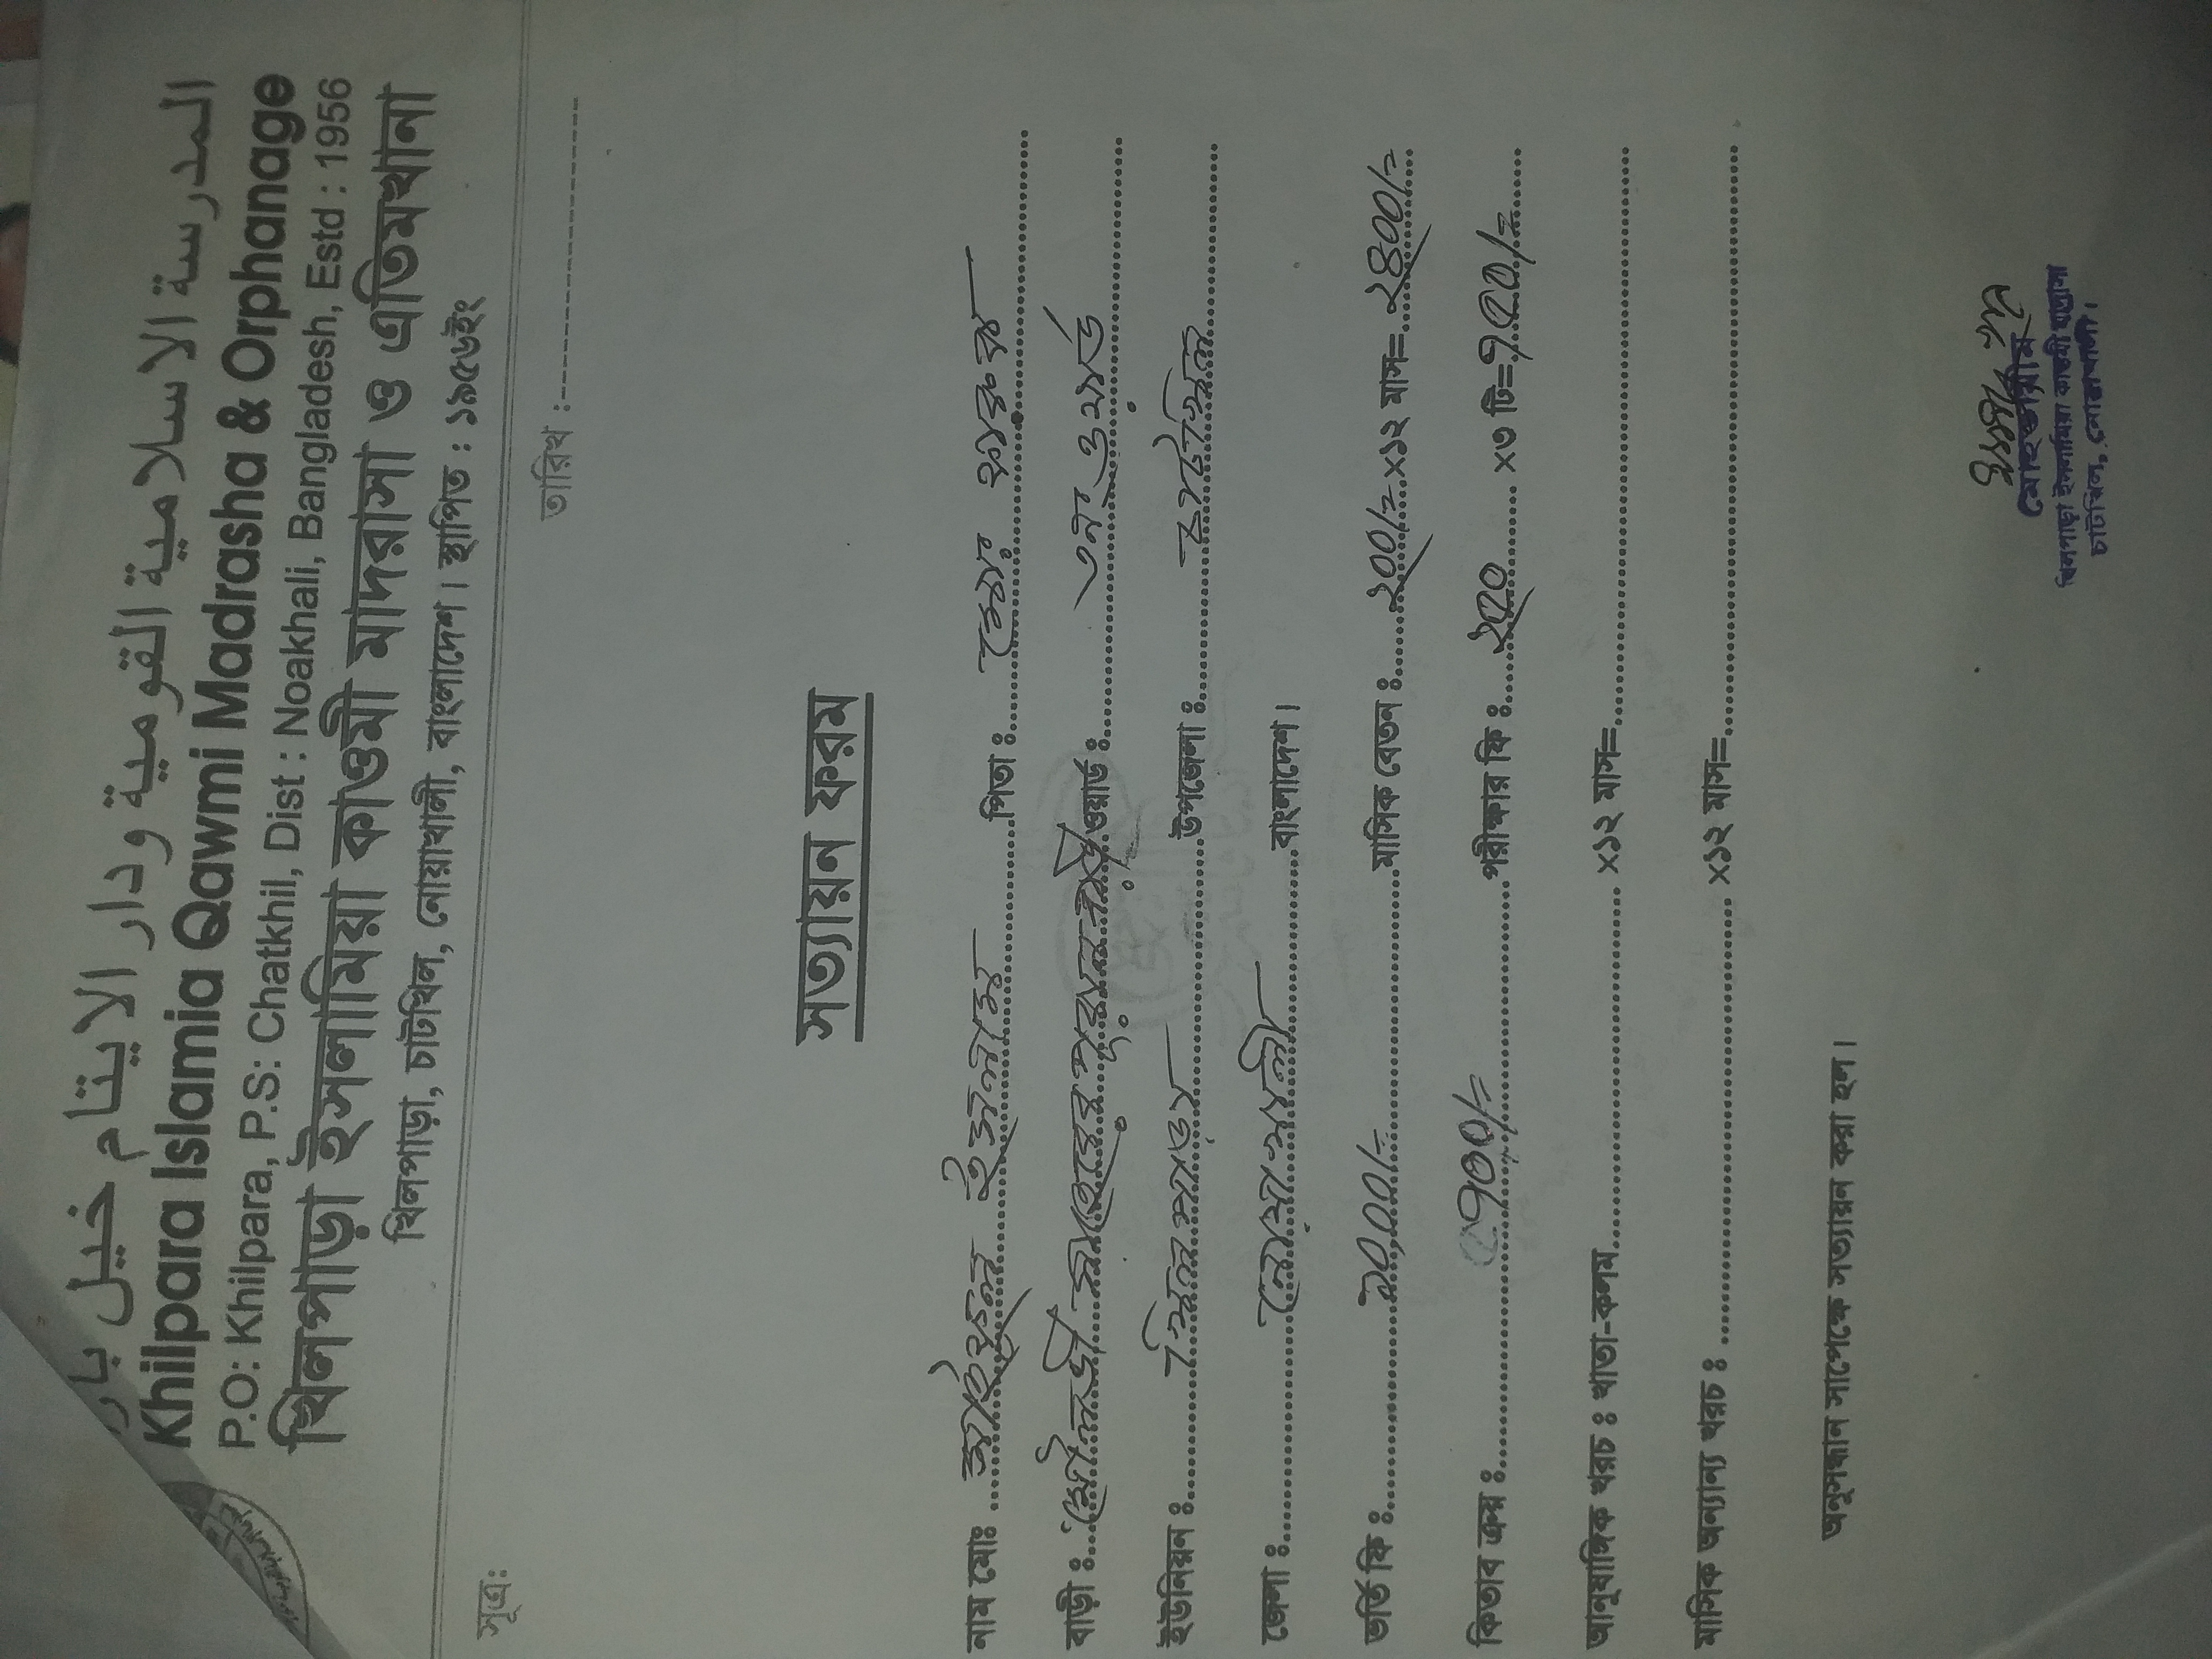 المدرسة الاسلامية القومية ودار الايتام خيل بار
Khilpara Islamia Qawmi Madrasha & Orphanage
P.O: Khilpara, P.S: Chatkhil, Dist : Noakhali, Bangladesh, Estd : 1956
খিলপাড়া ইসলামিয়া কাওমী মাদরাসা ও এতিমখানা
খিলপাড়া, চাটখিল, নোয়াখালী, বাংলাদেশ। স্থাপিত : ১৯৫৬ইং
সূত্র:
তারিখ :--------------------
সত্যায়ন ফরম
নাম মোঃ সাইফুল ইসলাম পিতা ঃ মোঃ ফারুক
বাড়ী ঃ মৌলভী সাহেবের পুরান বাড়ী ওয়ার্ড ঃ ৩নং ওয়ার্ড
ইউনিয়ন ঃ খিলপাড়া উপজেলা ঃ চাটখিল
জেলা ঃ নোয়াখালী বাংলাদেশ।
ভর্তি ফি ঃ ১০,০০/= মাসিক বেতন ঃ ২০০/= ×১২ মাস= ২৪০০/=
কিতাব ক্রয় ঃ পরীক্ষার ফি ঃ ২৫০ ×৩ টি= ৭৫০/=
আনুষাঙ্গিক খরচ ঃ খাতা-কলম ×১২ মাস=
মাসিক অন্যান্য খরচ ঃ ×১২ মাস=
অনুসন্ধান সাপেক্ষে সত্যায়ন করা হল।
মোহতামীম
খিলপাড়া ইসলামিয়া কাওমী মাদ্রাসা
চাটখিল, নোয়াখালী।